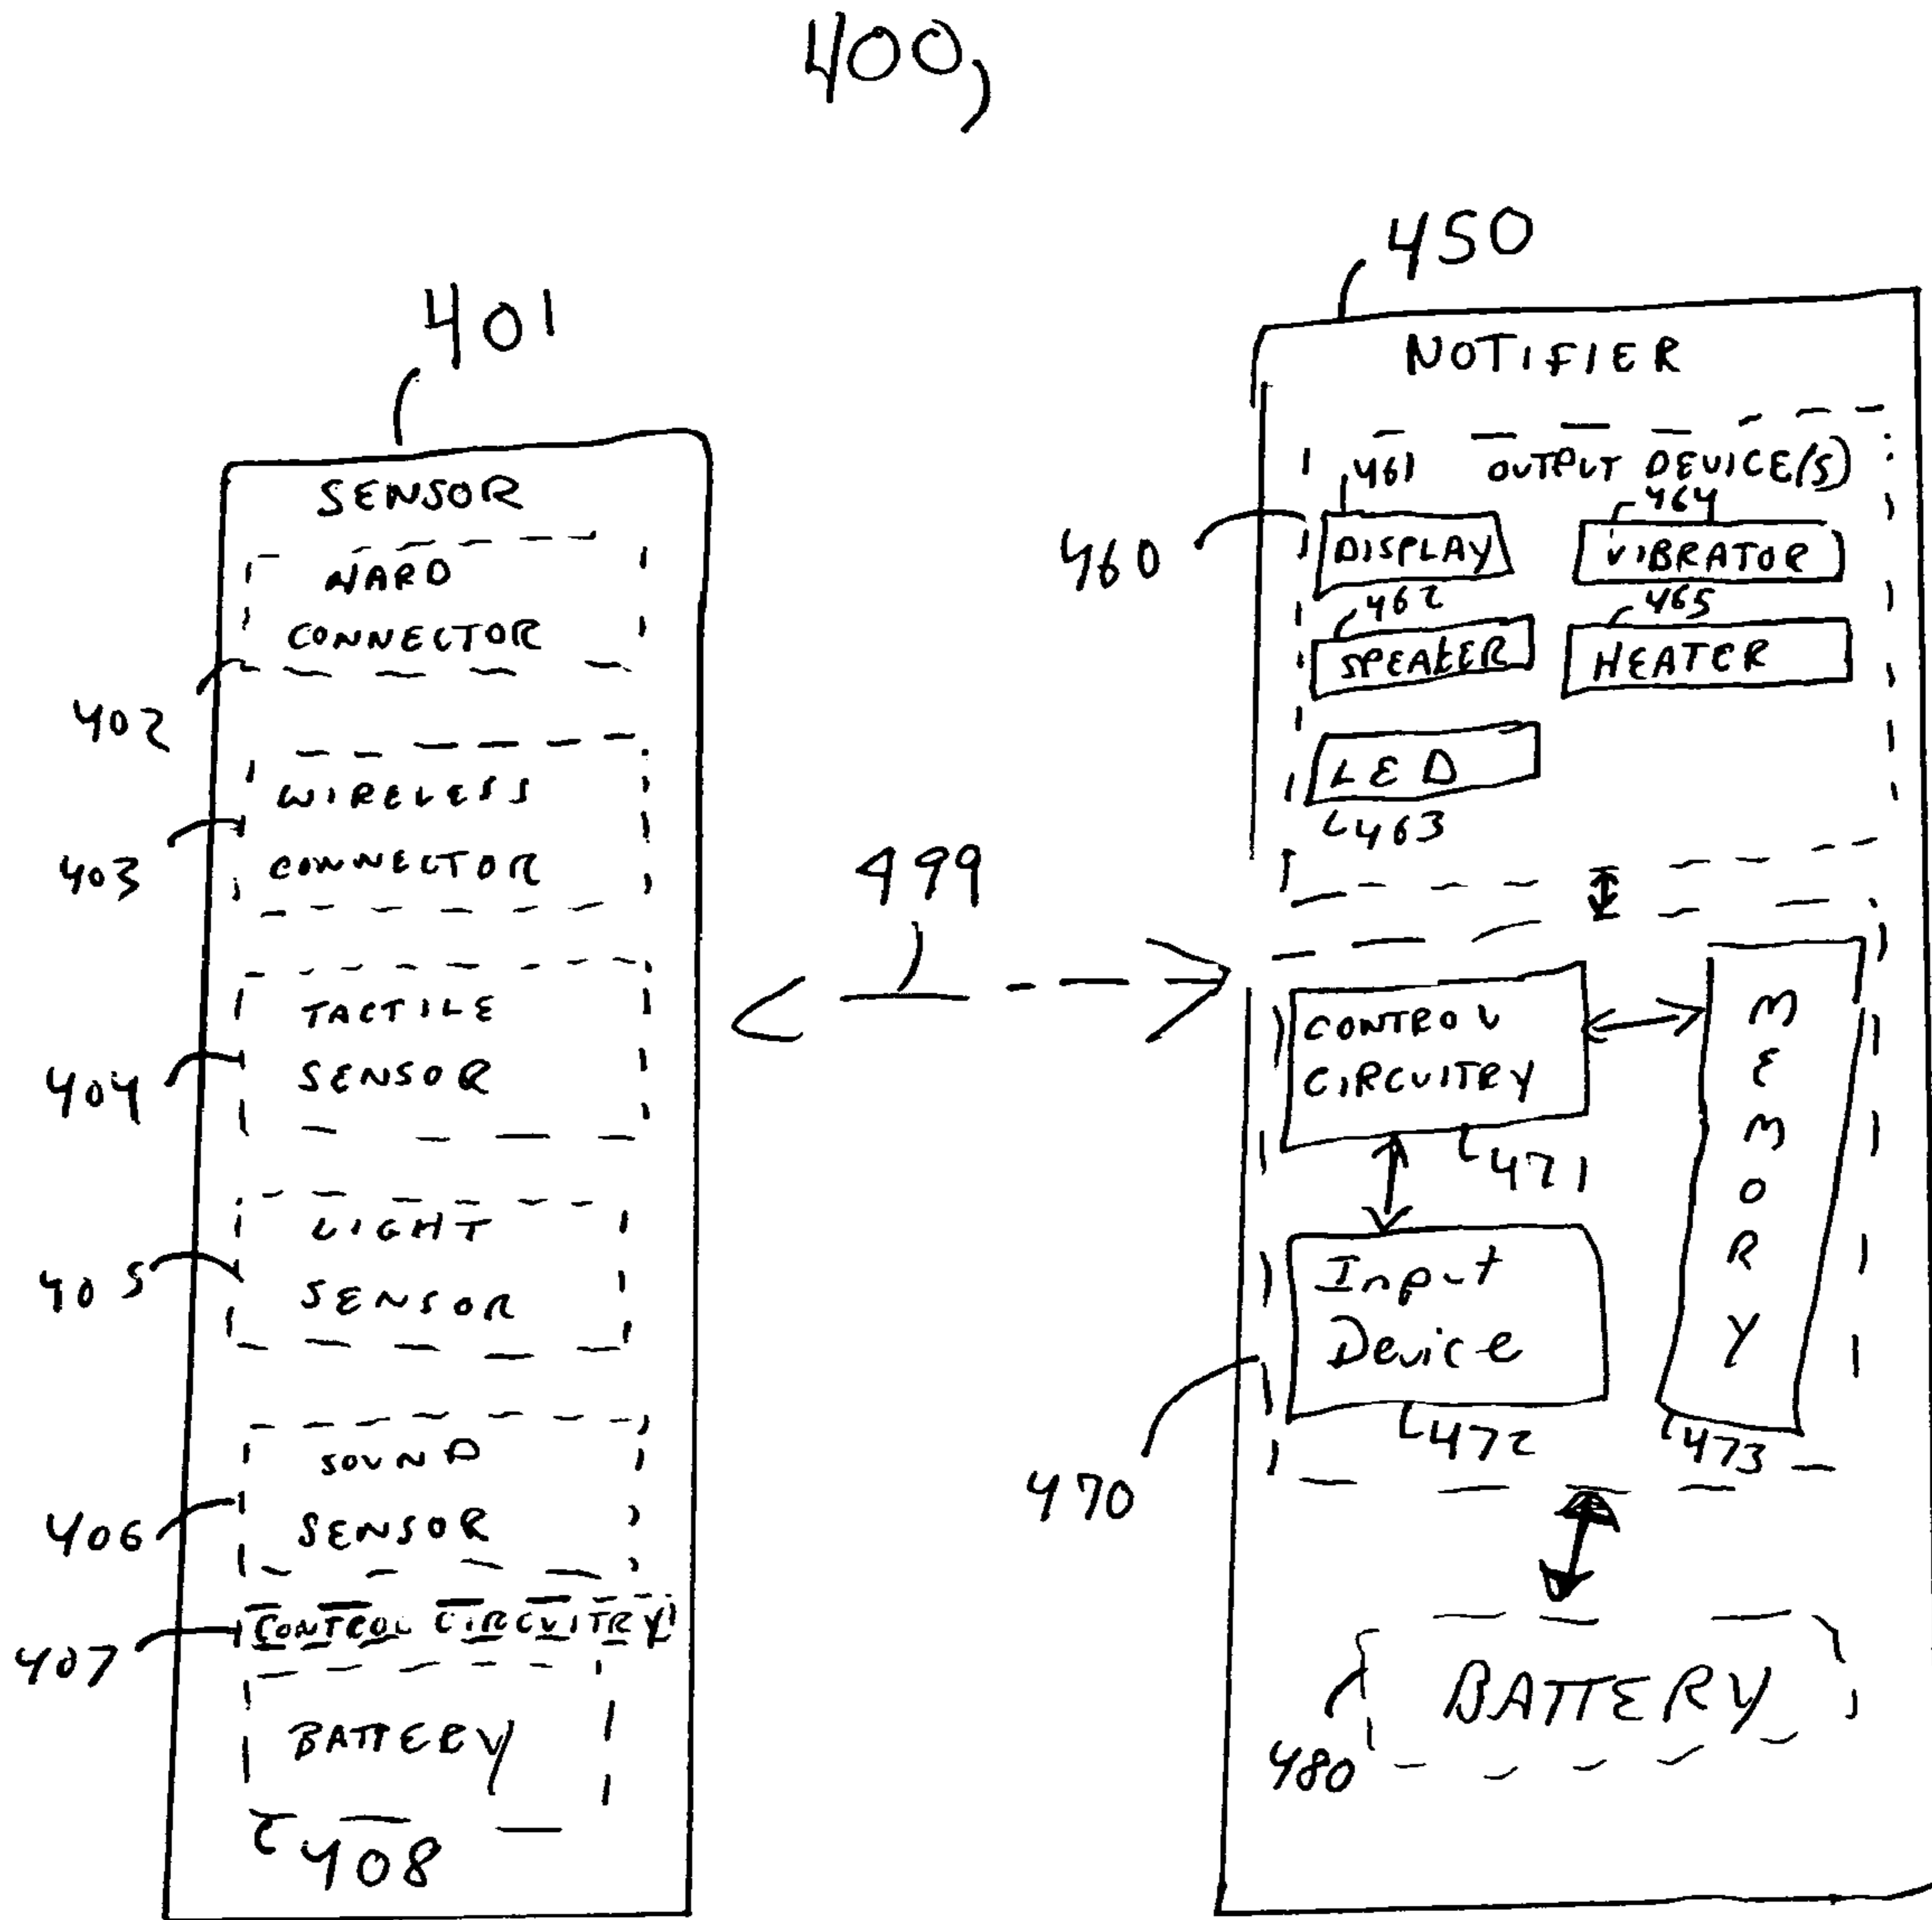 400
401
SENSOR
HARD
CONNECTOR
402
WIRELESS
CONNECTOR
403
TACTILE
SENSOR
404
LIGHT
SENSOR
405
SOUND
SENSOR
406
CONTROL CIRCUITRY
407
BATTERY
408
499
450
NOTIFIER
461 OUTPUT DEVICE(S)
464
460
DISPLAY VIBRATOR
462 465
SPEAKER HEATER
LED
463
CONTROL
CIRCUITRY
471
MEMORY
Input
Device
472
473
470
BATTERY
480